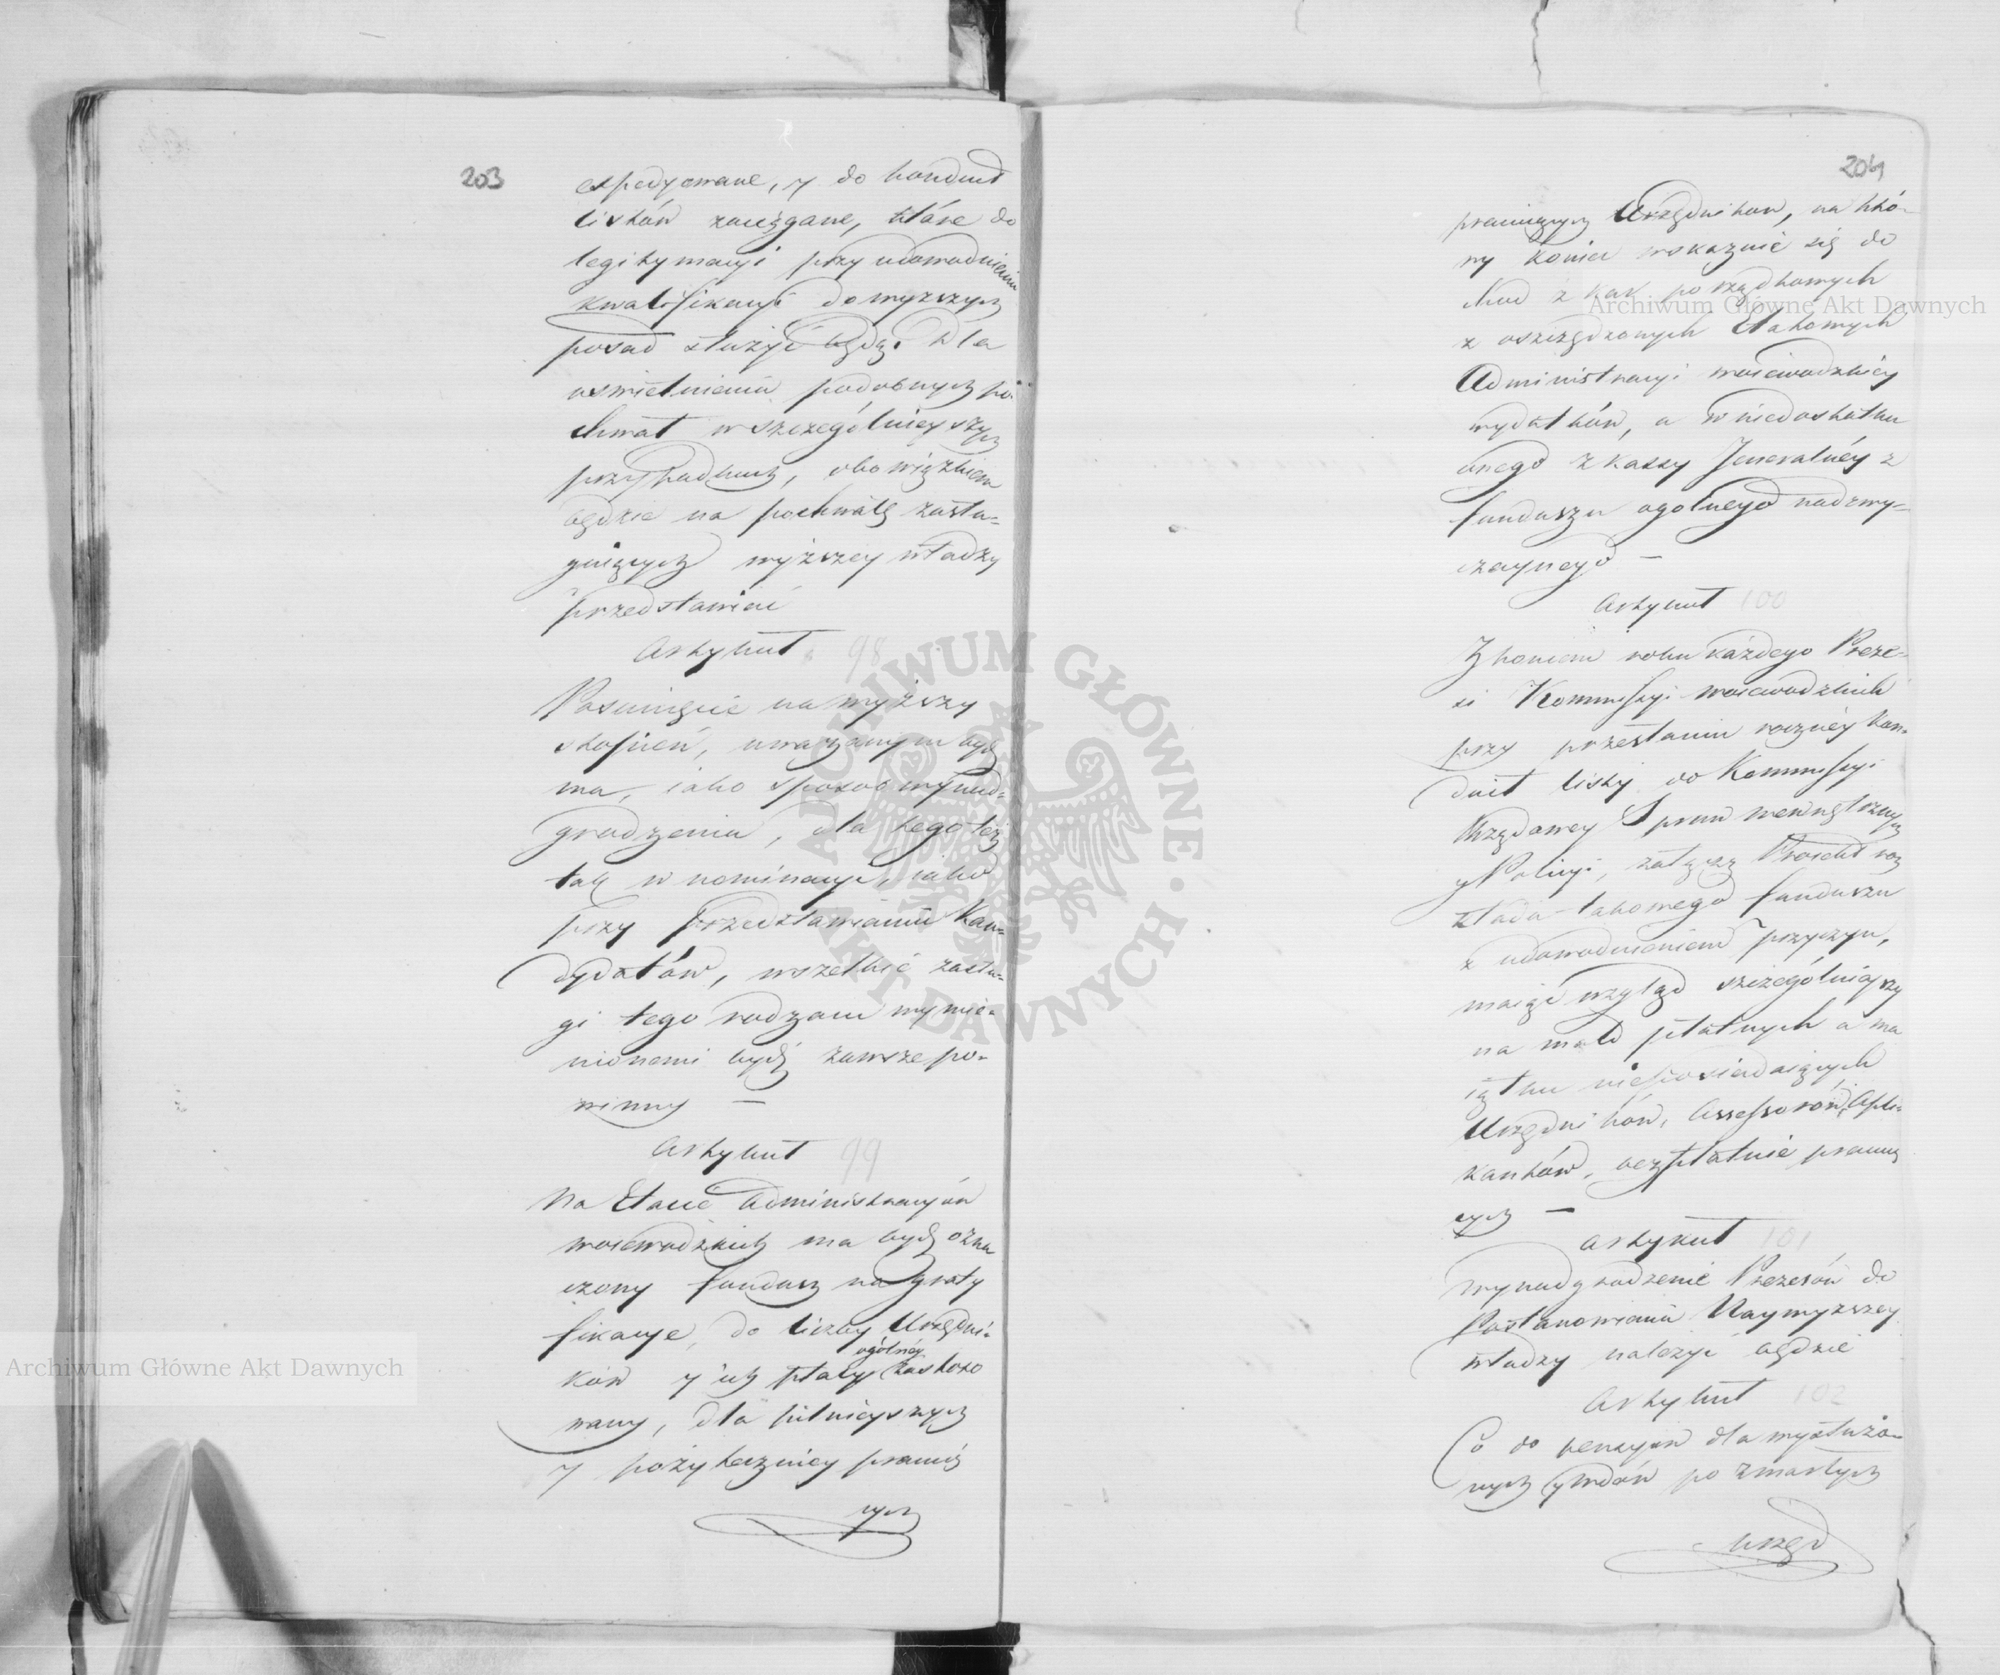 203
expedyowane, y do konduit
listów zaciągane, które do
legitymacyi przy udowodnieniu
kwalifikacyi do wyzszych
posad służyć będą. Dla
uświetnienia podobnych po-
chwał w szczególnieyszych
przypadkach, obowiązkiem
będzie na pochwałę zasłu-
guiących wyższey władzy
przedstawiać
Artykuł 98
Posunięcie na wyższy
stopień, uważanym bydź
ma, iako sposob wynad-
grodzenia, dla tego też
tak w nominacyi, iako
przy przedstawianiu Kan-
dydatów, wszelkie zasłu-
gi tego rodzaiu wymie-
nionemi bydź zawsze po-
winny —
Artykuł 99
Na Etacie Administracyów
woiewodzkich ma bydź ozna
czony fundusz na graty
fikacye, do liczby Urzędni-
ków y ich płacy ogólney zastoso
wany, dla pilnieyszych
y pożyteczniey pracuią
cych
204
pracuiących Urzędnikow, na któ-
ry koniec wskazuie się do
chod z kar porządkowych
z oszczędzonych etatowych
Administracyi woiewodzkiey
wydatków, a w niedostatku
onego z kassy Jeneralney z
funduszu ogolnego nadzwy-
czaynego —
Artykuł 100
Z koncem roku każdego Preze-
si Kommissyi woiewodzkich
przy przesłaniu roczney Kon-
duit listy do Kommissyi
Rządowey Spraw wewnętrznych
y Policyi, załączą Proiekt roz
kładu takowego funduszu
z udowodnieniem przyczyn,
maiąc wzgląd szczególnieyszy
na mało płatnych a ma
iątku nieposiadaiących
Urzędników, Assessorów, Apli-
kantów, bezpłatnie pracuią
cych —
Artykuł 101
Wynadgrodzenie Prezesów do
Postanowienia Naywyzszey
władzy należyć będzie
Artykuł 102
Co do pensyow dla wysłużo-
nych y wdów po zmarłych
urzęd
Archiwum Główne Akt Dawnych
Archiwum Główne Akt Dawnych
ARCHIWUM GŁÓWNE · AKT DAWNYCH ·